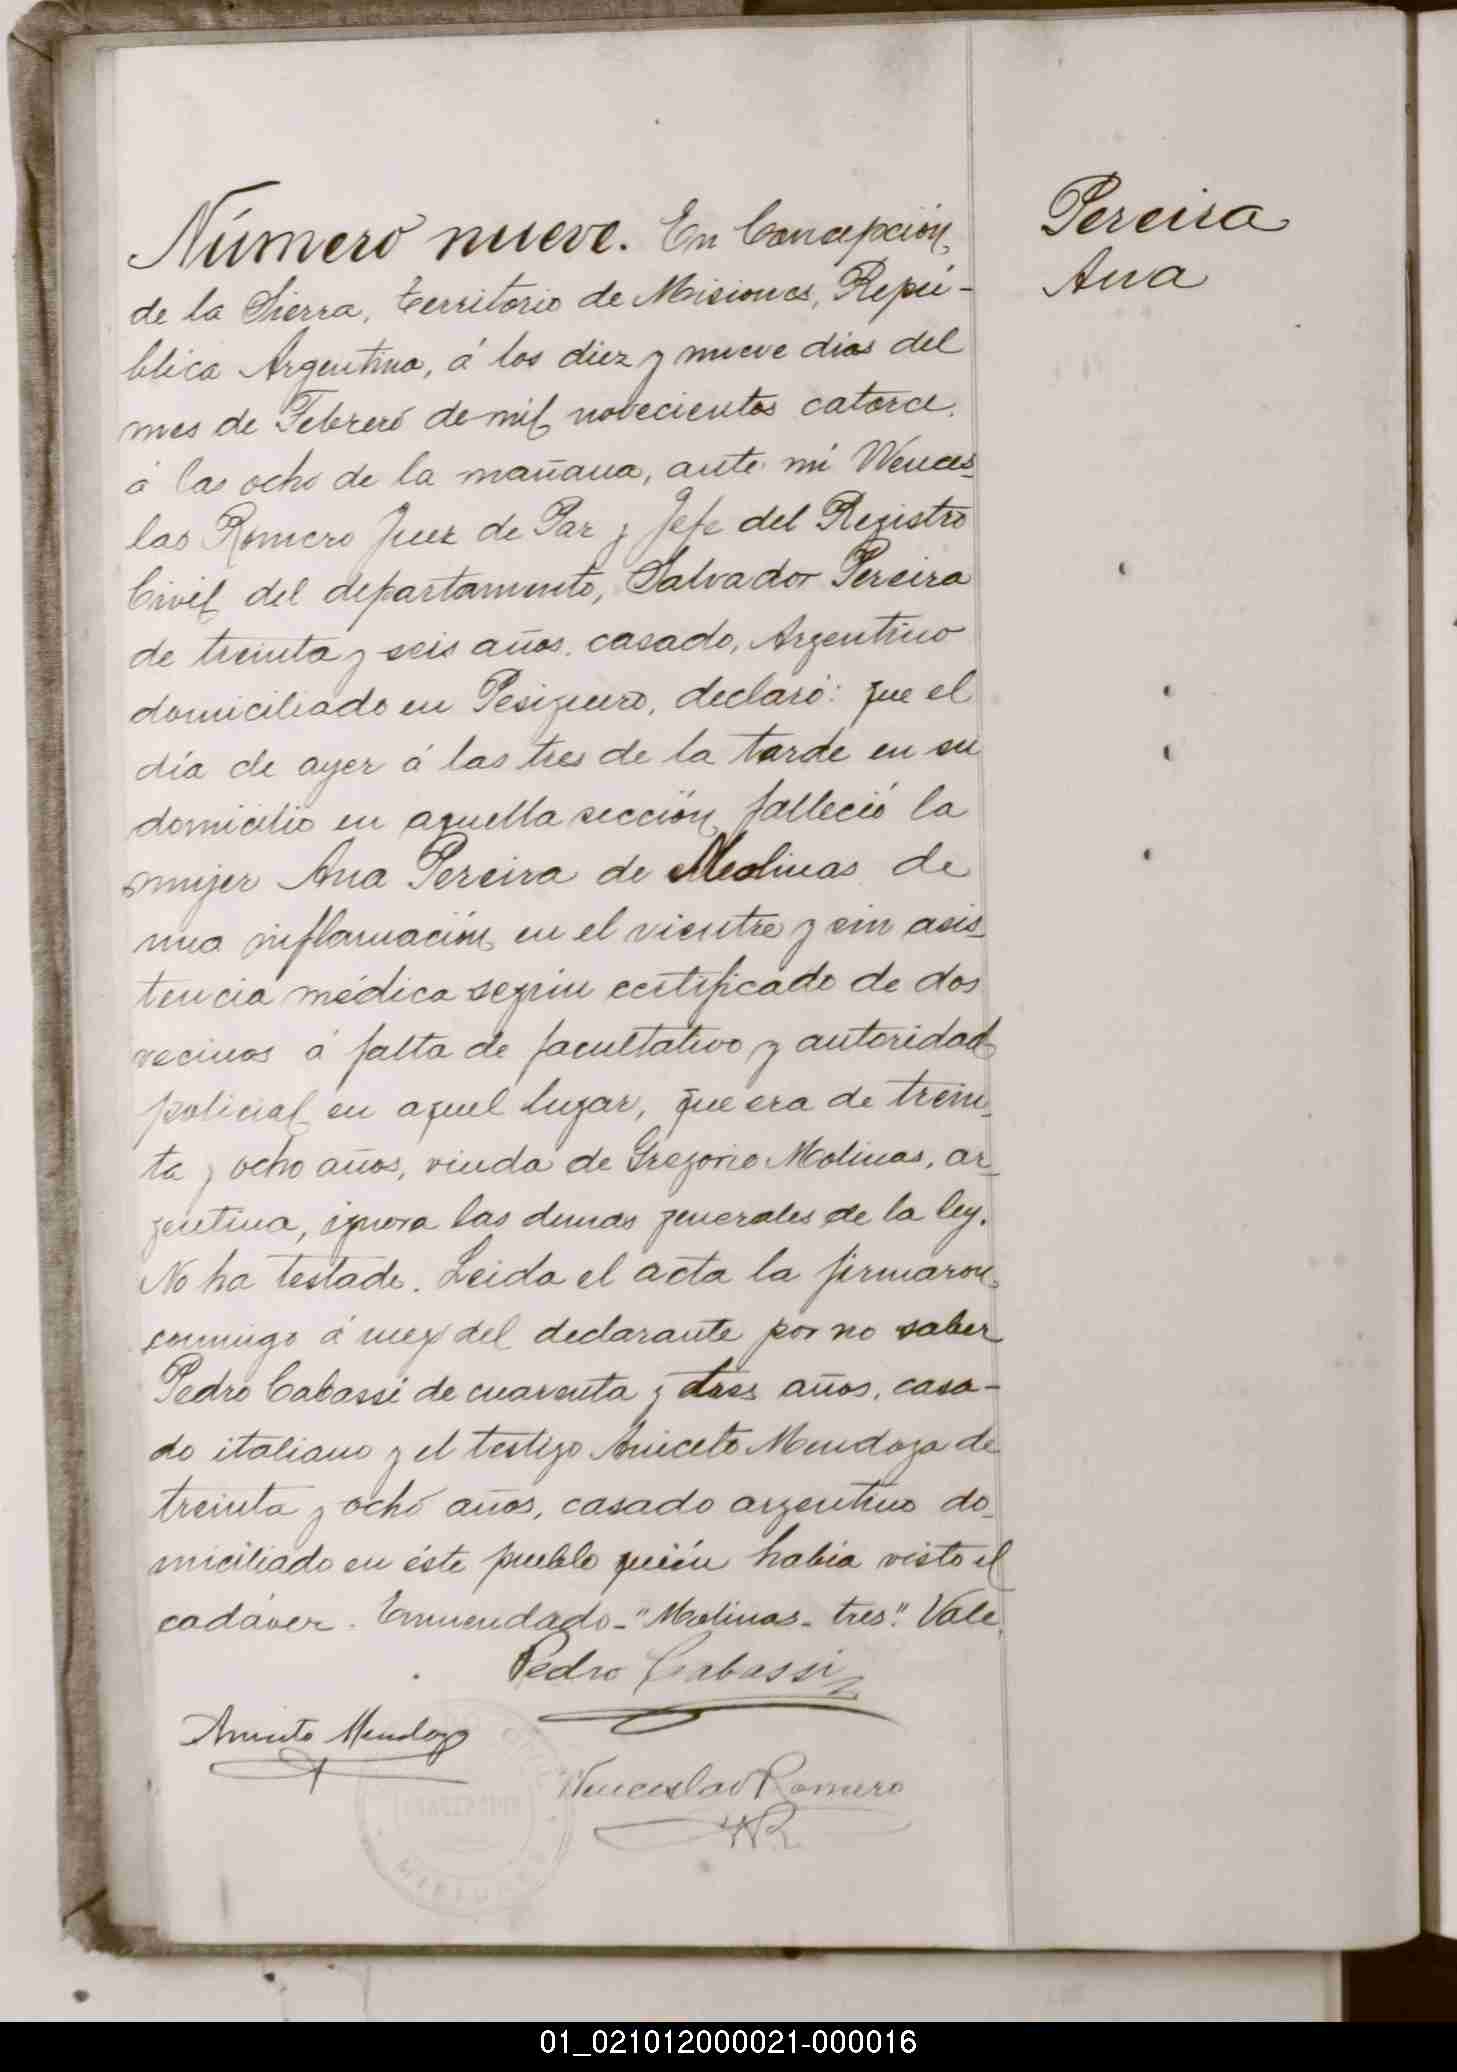 Número nueve. En Concepción
de la Sierra, territorio de Misiones, Repú-
blica Argentina, á los diez y nueve dias del
mes de Febrero de mil novecientos catorce.
á las ocho de la mañana, ante mi Wences-
lao Romero Juez de Paz y Jefe del Registro
Civil del departamento, Salvador Pereira
de treinta y seis años. casado, Argentino
domiciliado en Pesiguero, declaró: que el
día de ayer á las tres de la tarde en su
domicilio en aquella sección falleció la
mujer Ana Pereira de Molinas de
una inflamación en el vientre y sin asis-
tencia médica según certificado de dos
vecinos á falta de facultativo y autoridad
policial en aquel lugar, que era de trein-
ta y ocho años, viuda de Gregorio Molinas, ar-
gentina, ignora las demas generales de la ley.
No ha testado. Leida el acta la firmaron
conmigo á ruego del declarante por no saber
Pedro Cabassi de cuarenta y tres años, casa-
do italiano y el testigo Aniceto Mendoza de
treinta y ocho años, casado argentino do-
miciliado en éste pueblo quién habia visto el
cadáver. Enmendado-"Molinas-tres". Vale.
Pedro Cabassi
Aniceto Mendoza
Wenceslao Romero
WR
CONCEPCION
MISIONES
Pereira
Ana
01_021012000021-000016